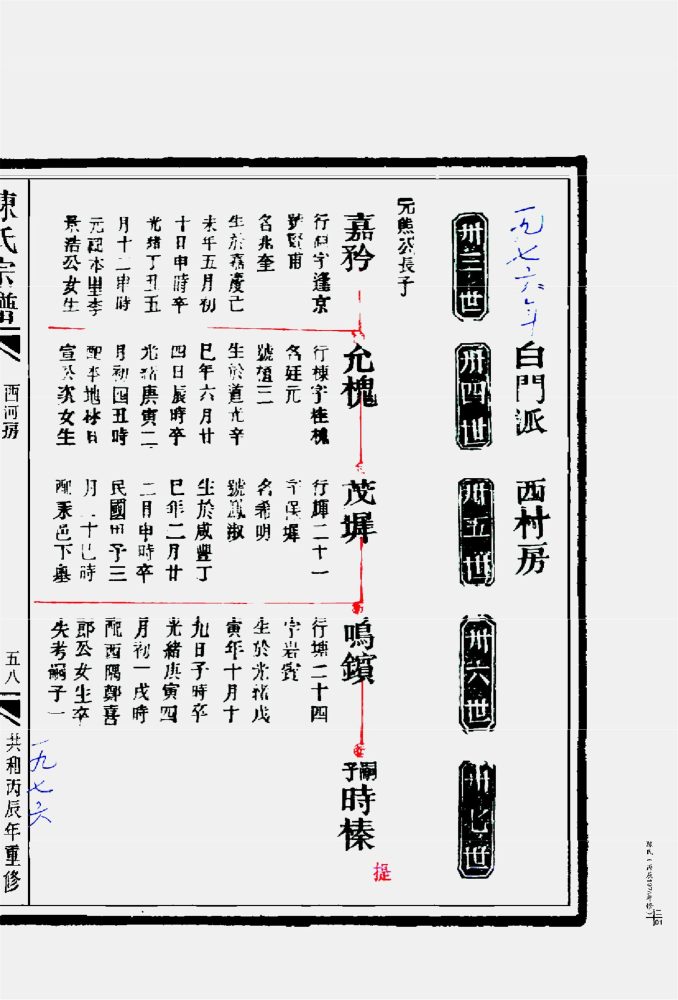 一九七六年
白門派　西村房
卅三世
卅四世
卅五世
卅六世
卅七世
元熊公長子
嘉矜
行 字逢京
號賢甫
名兆奎
生於嘉慶己
未年五月初
十日申時卒
光緒丁丑五
月十二申時
元配本里李
景浩公女生
允槐
行棟字桂槐
名廷元
號植三
生於道光辛
巳年六月廿
四日辰時卒
光緒庚寅二
月初四丑時
配半地林日
宣公次女生
茂墀
行墀二十一
字 墀
名希明
號鳳淑
生於咸豐丁
巳年二月廿
二月申時卒
民國 子三
月 十巳時
配 邑下墓
鳴鑌
行塘二十四
字岩賓
生於光緒戊
寅年十月十
九日子時卒
光緒庚寅四
月初一戌時
配西隅鄭喜
郎公女生卒
失考嗣子一
嗣子
時榛
提
陳氏宗譜
西河房
五八
共利丙辰年重修
一九七六